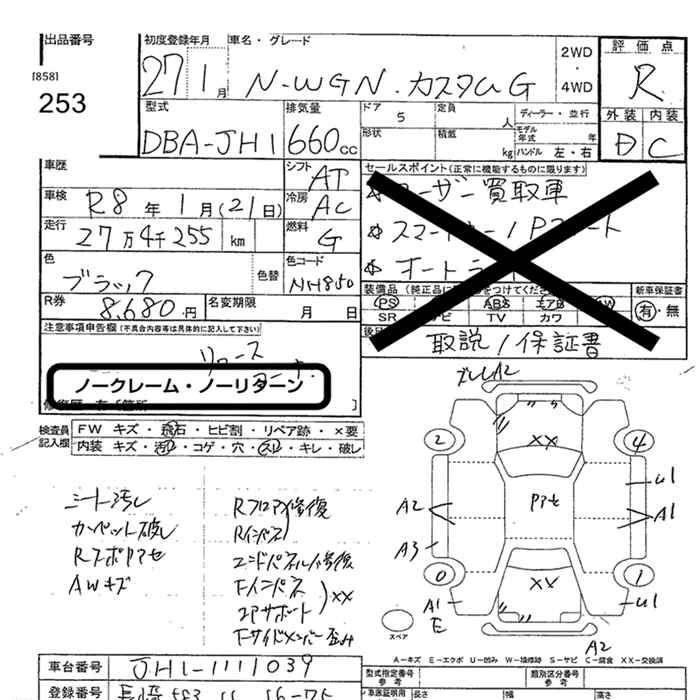 出品番号
[858]
253
初度登録年月
27 1月
車名・グレード
N-WGN カスタム G
2WD
・
4WD
評価点
R
外装 内装
D C
型式
DBA-JH1
排気量
660cc
ドア
5
定員
人
形状
積載
kg
ディーラー・並行
モデル年式 年
ハンドル 左・右
車歴
シフト
AT
車検
R8年1月(21日)
冷房
AC
走行
27万4千255 km
燃料
G
色
ブラック
色替
色コード
R券
8,680円
名変期限
月 日
セールスポイント(正常に機能するものに限ります)
ユーザー買取車
オート
PS ABS エアB AW
SR ナビ TV カワ
新車保証書
有・無
取説/保証書
注意事項申告欄(不具合内容等は具体的に記入して下さい)
ノークレーム・ノーリターン
検査員記入欄
FW キズ・飛石・ヒビ割・リペア跡・×要
内装 キズ・汚れ・コゲ・穴・スレ・キレ・破レ
シート汚れ
カーペット破レ
AWキズ
Rフロア修復
Rインパネ
エンドパネル修復
Fインパネ
コアサポート
××
Fサイドメンバー歪み
A2
2
××
4
U1
A2
Pアセ
A1
A3
0
××
1
A1
E
U1
スペア
A2
A-キズ E-エクボ U-凹み W-補修跡 S-サビ C-腐食 XX-交換済
車台番号
JH1-1111039
登録番号
長崎 583
型式指定番号
参考
類別区分番号
参考
長さ 幅 高さ